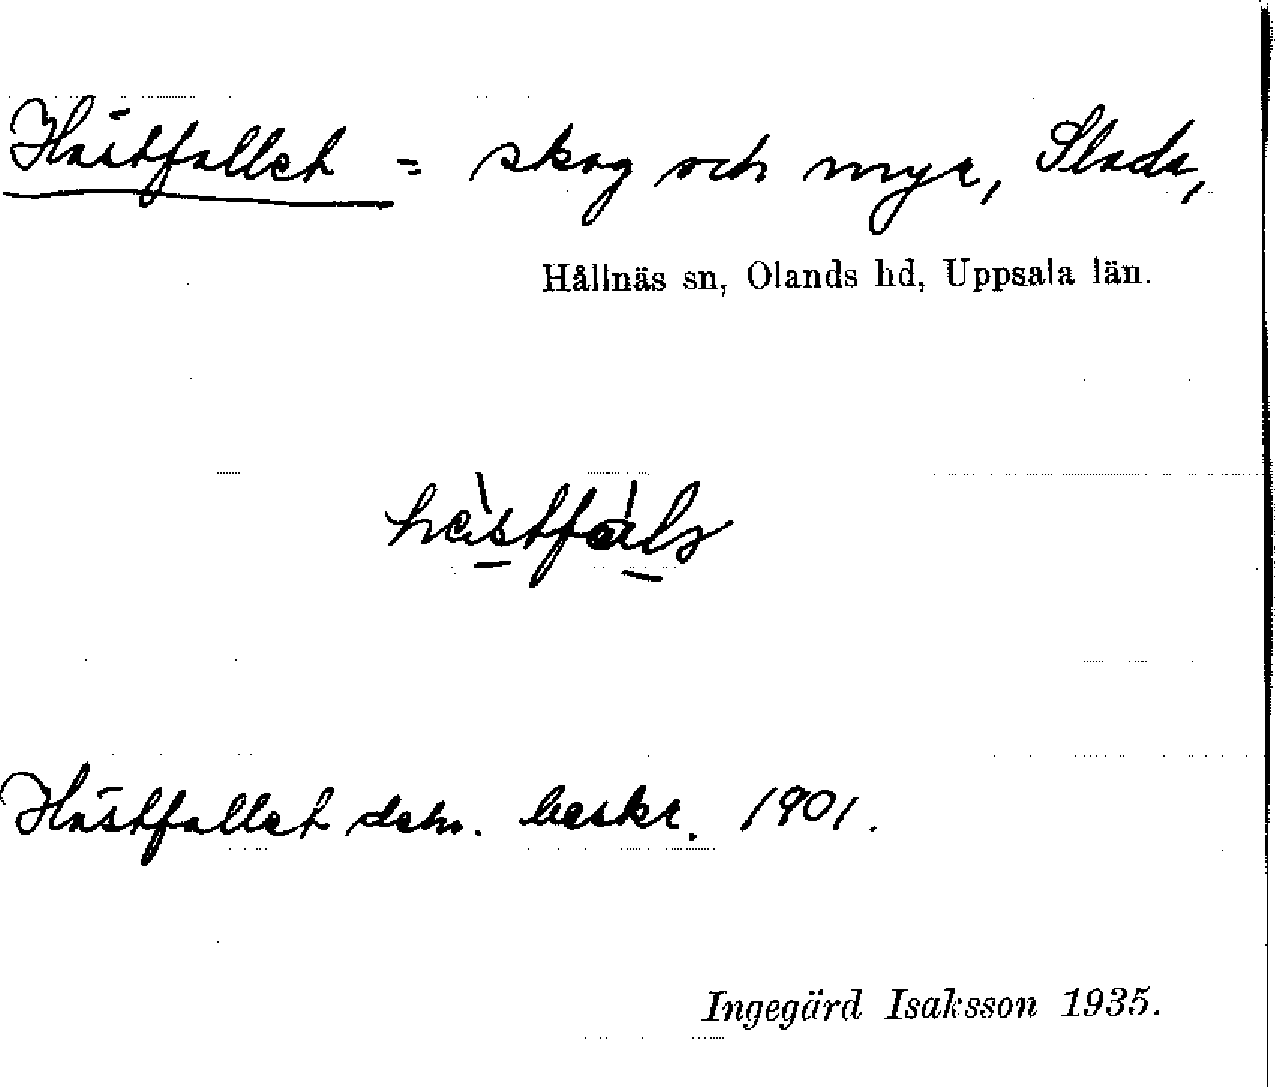 Hästfallet = skog och myr, Slada,
Hållnäs sn, Olands hd, Uppsala län.
Hästfallet beskr. 1901.
Ingegärd Isaksson 1935.